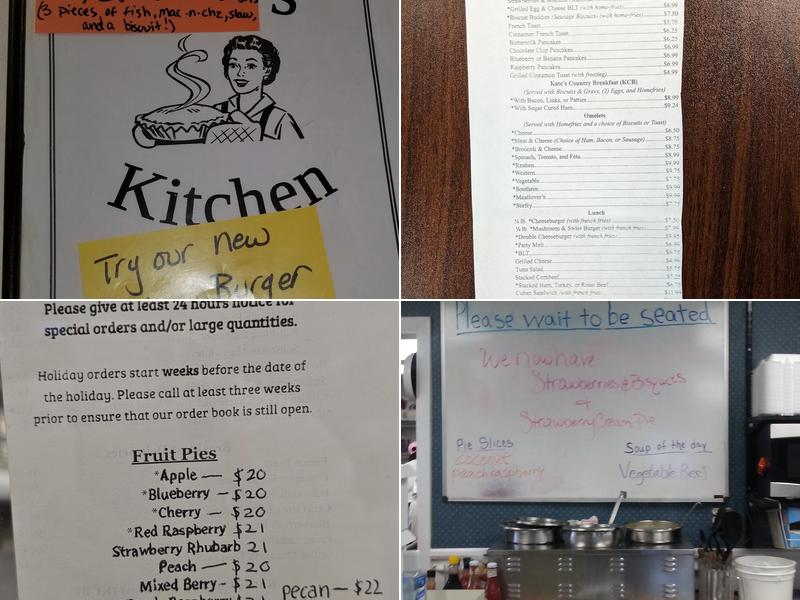 (3 pieces of fish, mac-n-chz, slaw,
and a biscuit!)
S
Kitchen
Try our new
Burger
*Grilled Egg & Cheese BLT (with home-fries) $8.99
*Biscuit Buddies (Sausage Biscuits) (with home-fries) $7.50
French Toast $5.75
Cinnamon French Toast $6.25
Buttermilk Pancakes $6.25
Chocolate Chip Pancakes $6.99
Blueberry or Banana Pancakes $6.99
Raspberry Pancakes $6.99
Grilled Cinnamon Toast (with frosting) $4.99
Kate's Country Breakfast (KCB)
(Served with Biscuits & Gravy, (2) Eggs, and Homefries)
*With Bacon, Links, or Patties $8.99
*With Sugar Cured Ham $9.24
Omelets
(Served with Homefries and a choice of Biscuits or Toast)
*Cheese $6.50
*Meat & Cheese (Choice of Ham, Bacon, or Sausage) $8.75
*Broccoli & Cheese $8.75
*Spinach, Tomato, and Feta $8.99
*Reuben $9.99
*Western $9.99
*Vegetable
*Southern $9.99
*Meatlover's $9.99
*Stirfry
Lunch
¼ lb. *Cheeseburger (with french fries) $7.50
¼ lb. *Mushroom & Swiss Burger (with french fries)
*Double Cheeseburger (with french fries)
*Patty Melt
*BLT
Grilled Cheese $4.99
Tuna Salad
Stacked Cornbeef
*Stacked Ham, Turkey, or Roast Beef
Cuban Sandwich (with french fries) $11.99
Please give at least 24 hours notice for
special orders and/or large quantities.
Holiday orders start weeks before the date of
the holiday. Please call at least three weeks
prior to ensure that our order book is still open.
Fruit Pies
*Apple — $20
*Blueberry — $20
*Cherry — $20
*Red Raspberry $21
Strawberry Rhubarb 21
Peach — $20
Mixed Berry - $21
pecan — $22
Please wait to be seated
We now have
Strawberries & Bisques
&
Strawberry Cream Pie
Pie Slices
coconut
peach raspberry
Soup of the day
Vegetable Beef